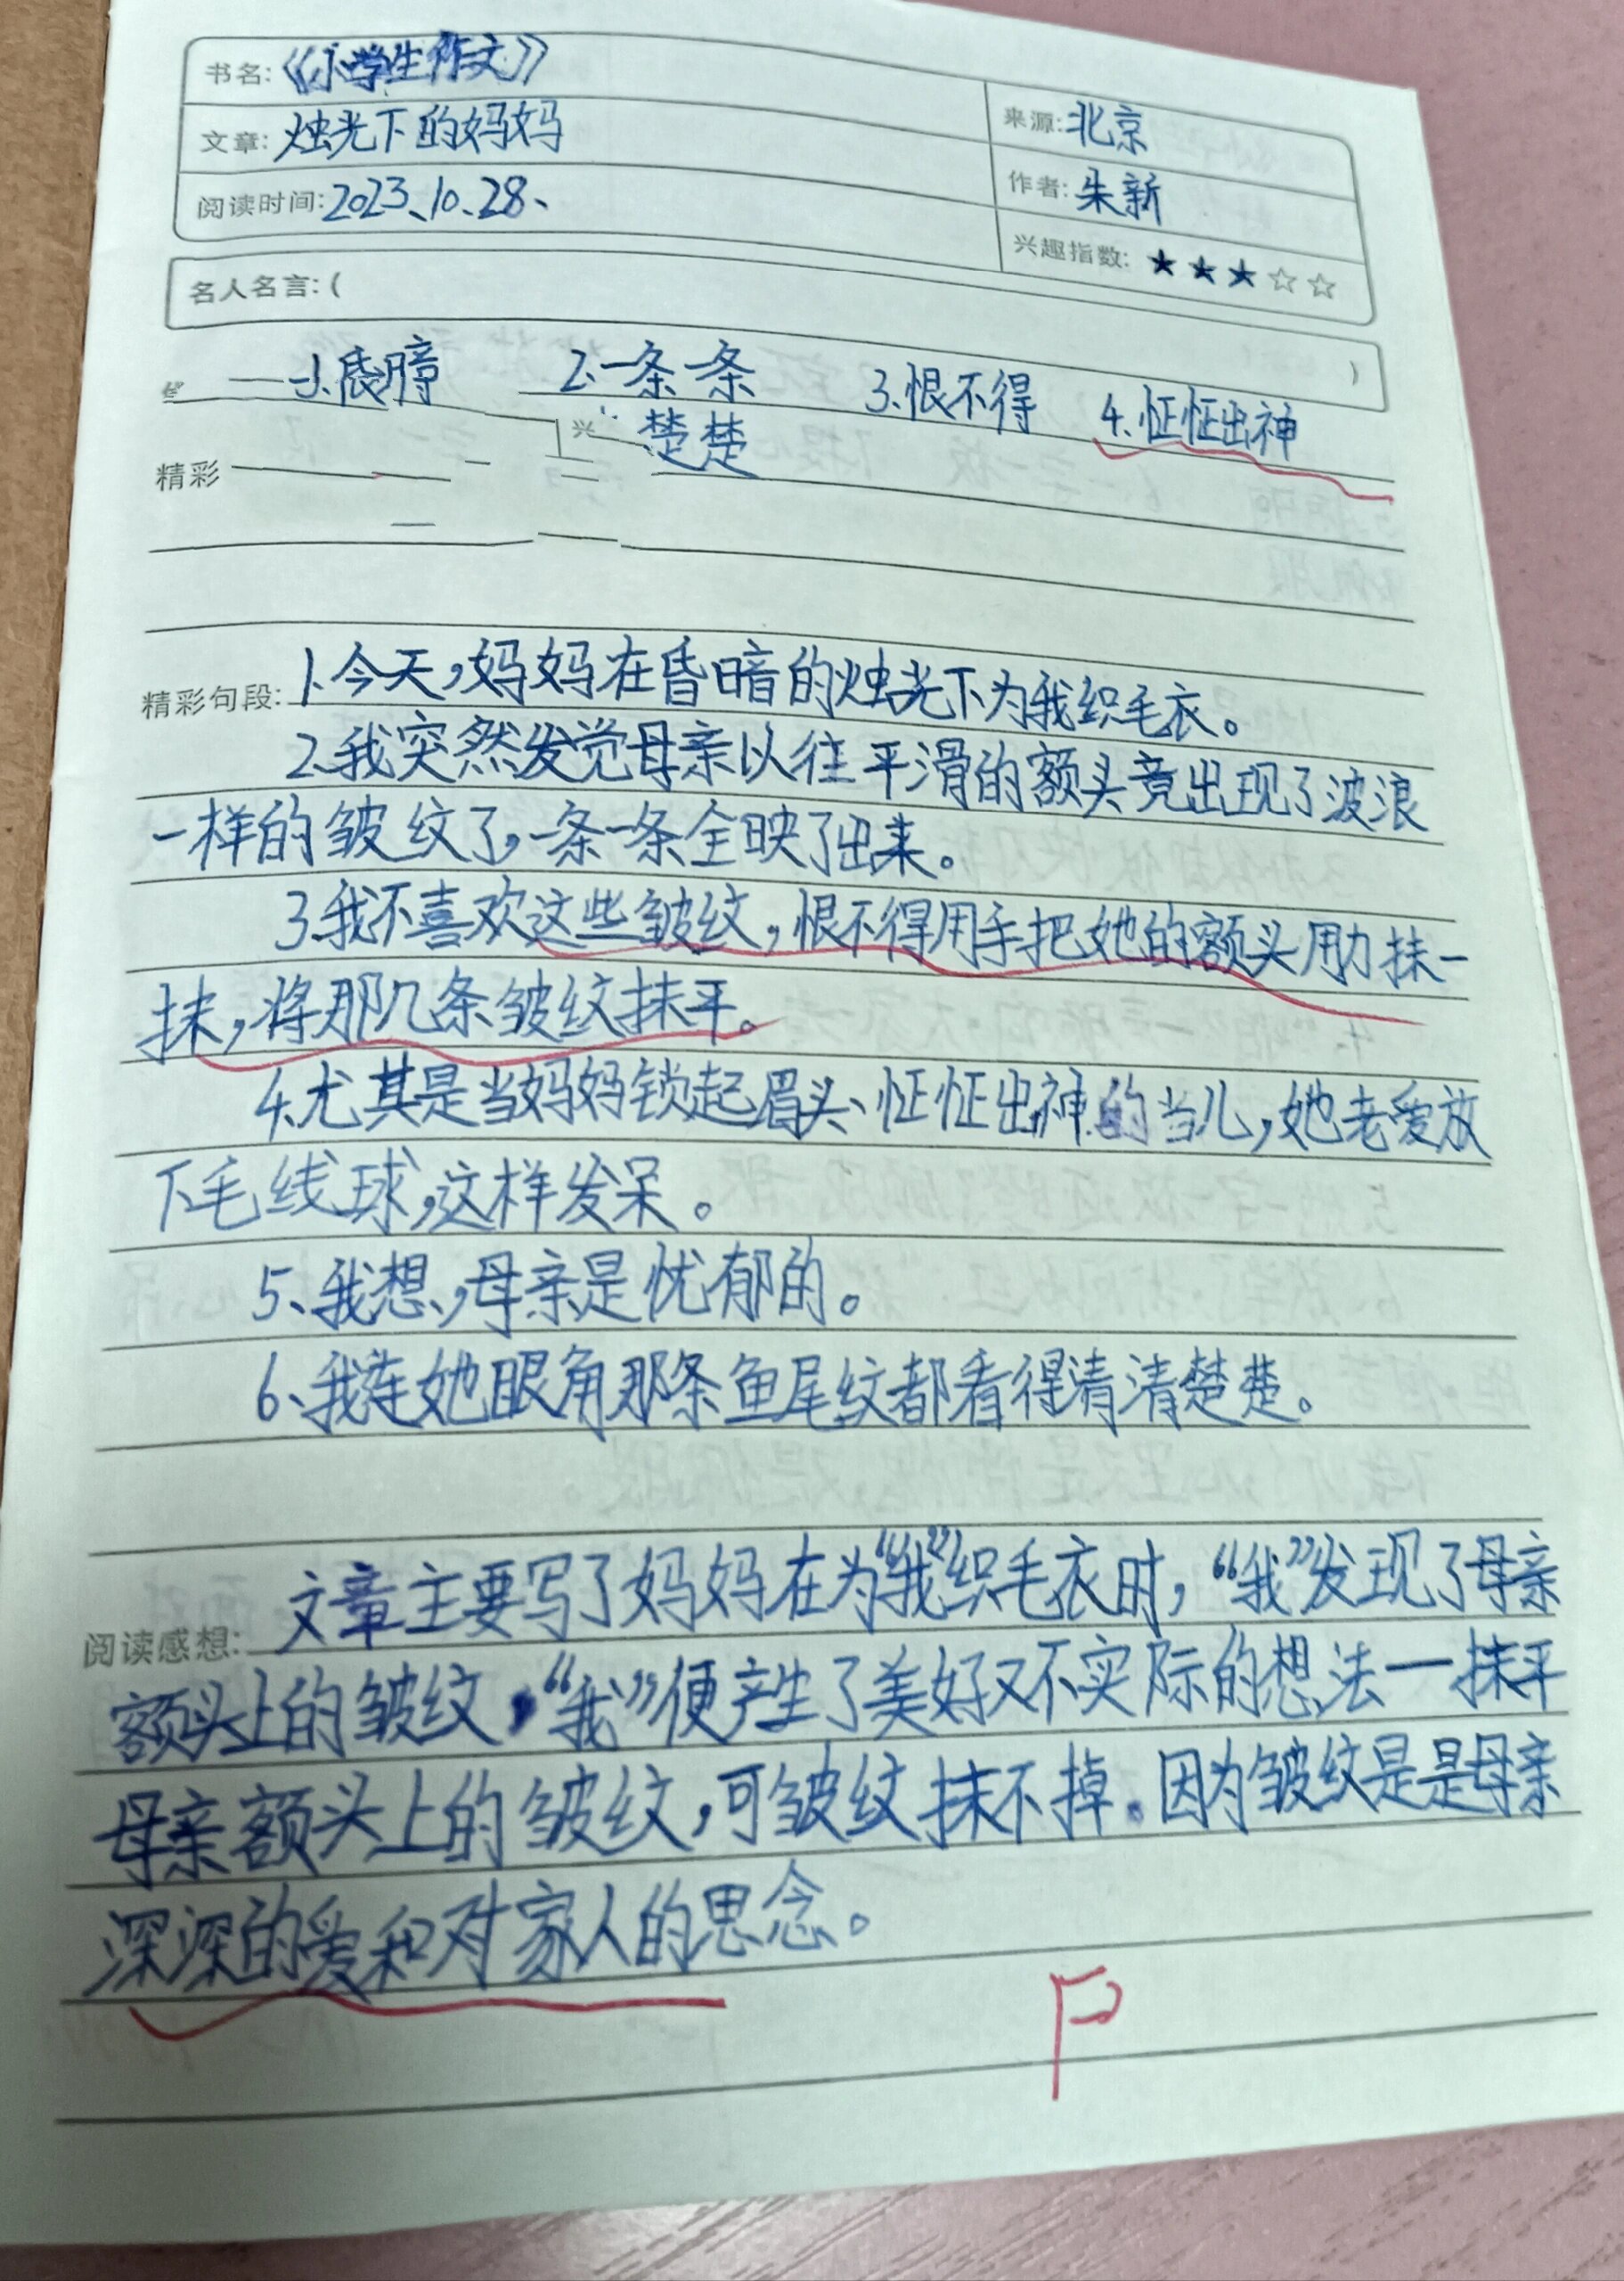 书名:《小学生作文》
来源:北京
文章:烛光下的妈妈
作者:朱新
阅读时间:2023、10、28、
兴趣指数:★★★☆☆
名人名言:(
)
1、昏暗 2、一条一条 3、恨不得 4、怔怔出神
兴 楚楚
精彩
精彩句段:1、今天,妈妈在昏暗的烛光下为我织毛衣。
2、我突然发觉母亲以往平滑的额头竟出现了波浪
一样的皱纹了,一条一条全映了出来。
3、我不喜欢这些皱纹,恨不得用手把她的额头用力抹一
抹,将那几条皱纹抹平。
4、尤其是当妈妈锁起眉头、怔怔出神的当儿,她老爱放
下毛线球,这样发呆。
5、我想,母亲是忧郁的。
6、我连她眼角那条鱼尾纹都看得清清楚楚。
文章主要写了妈妈在为“我”织毛衣时,“我”发现了母亲
阅读感想:
额头上的皱纹,“我”便产生了美好又不实际的想法一抹平
母亲额头上的皱纹,可皱纹抹不掉。因为皱纹是是母亲
深深的爱和对家人的思念。